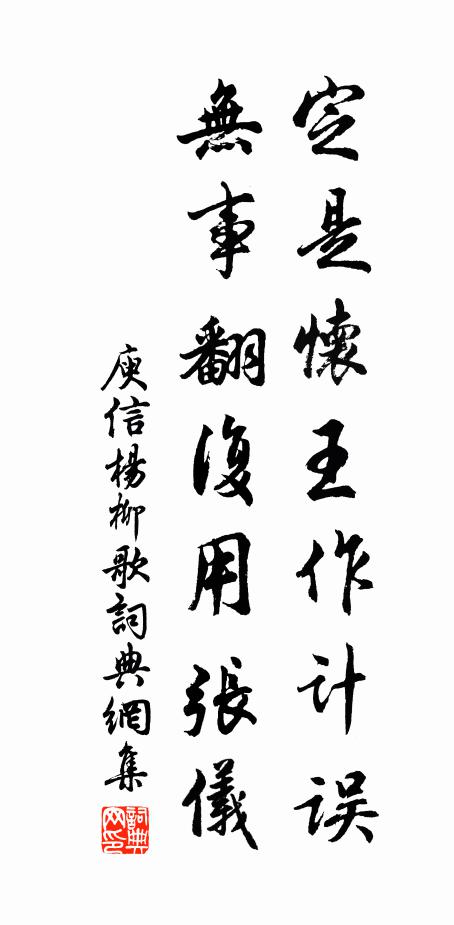 定是懷王作計誤
無事翻復用張儀
庾信楊柳歌詞典網集
詞典網印